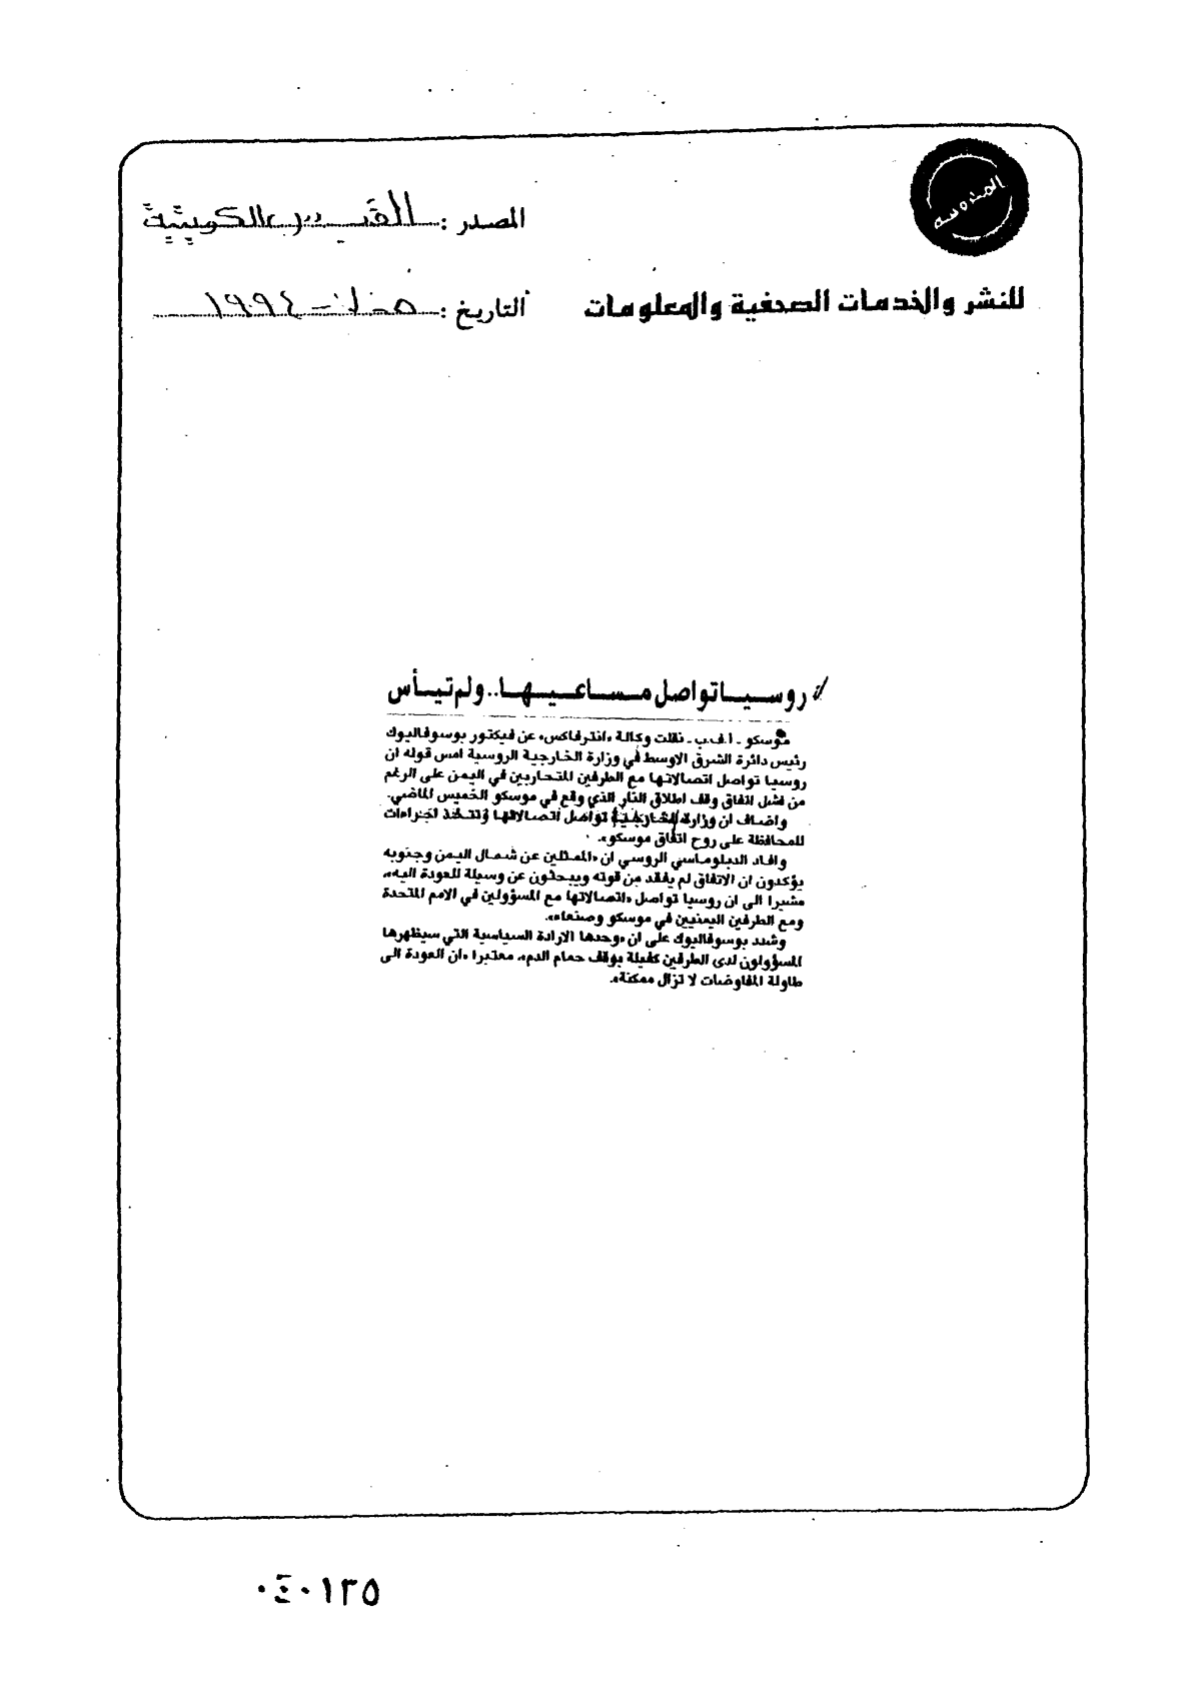 المصدر : القبس الكويتية
للنشر والخدمات الصحفية والمعلومات
التاريخ : ١٩٩٤
روسيا تواصل مساعيها.. ولم تيأس
موسكو - ا.ف.ب - نقلت وكالة «انترفاكس» عن فيكتور بوسوفاليوك
رئيس دائرة الشرق الاوسط في وزارة الخارجية الروسية امس قوله ان
روسيا تواصل اتصالاتها مع الطرفين المتحاربين في اليمن على الرغم
من فشل اتفاق وقف اطلاق النار الذي وقع في موسكو الخميس الماضي.
واضاف ان وزارة الخارجية تواصل اتصالاتها وتتخذ اجراءات
للمحافظة على روح اتفاق موسكو».
وافاد الدبلوماسي الروسي ان «الممثلين عن شمال اليمن وجنوبه
يؤكدون ان الاتفاق لم يفقد من قوته ويبحثون عن وسيلة للعودة اليه»،
مشيرا الى ان روسيا تواصل «اتصالاتها مع المسؤولين في الامم المتحدة
ومع الطرفين اليمنيين في موسكو وصنعاء».
وشدد بوسوفاليوك على ان «وحدها الارادة السياسية التي سيظهرها
المسؤولون لدى الطرفين كفيلة بوقف حمام الدم»، معتبرا «ان العودة الى
طاولة المفاوضات لا تزال ممكنة».
٠٤٠١٣٥